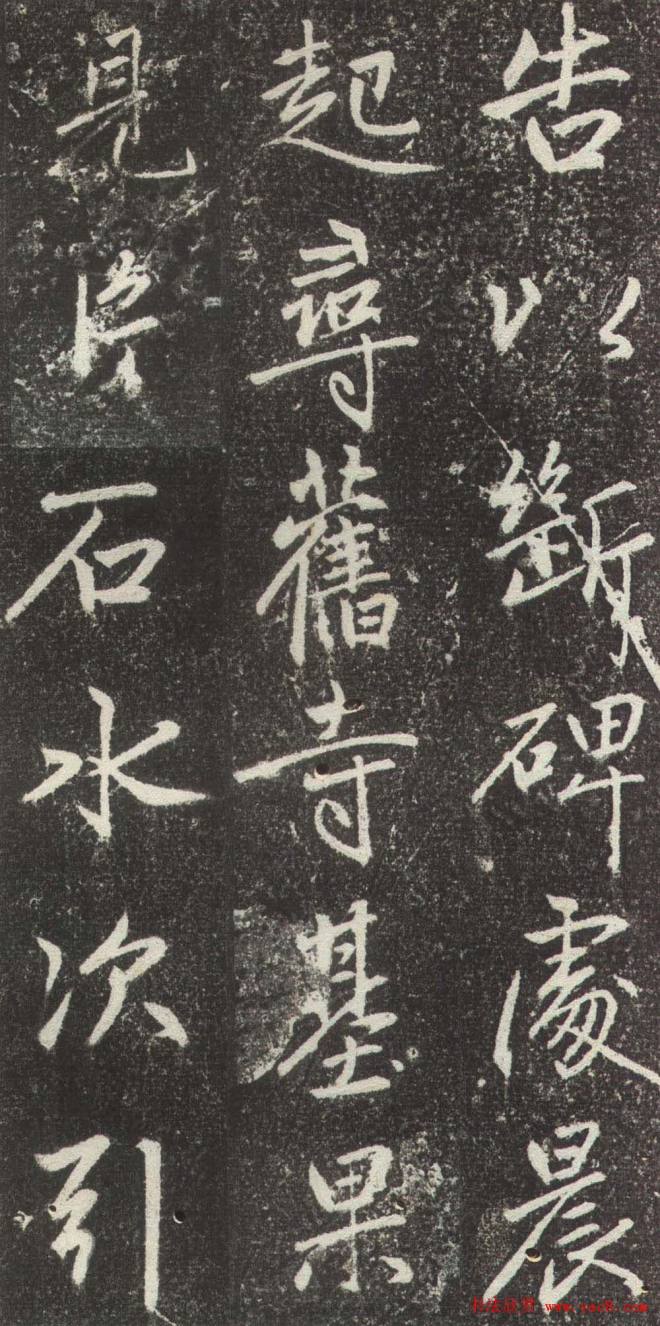 告以斷碑處晨
起尋舊寺基果
見片石水次引
书法欣赏 www.yac8.com